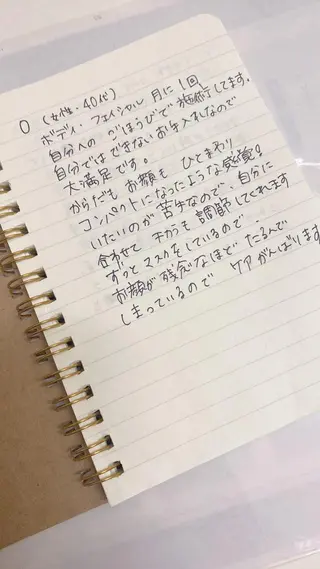 ○ (女性・40代)
ボディ・フェイシャル 月に1回
自分への ごほうびで 施術してます。
自分では できない お手入れなので
大満足です。
からだも お顔も ひとまわり
コンパクトになったような感覚!
いたいのが 苦手なので、自分に
合わせて 力も 調節してくれます
ずっと マスクをしているので、
お顔が 残念なほど たるんで
しまっているので ケア がんばります